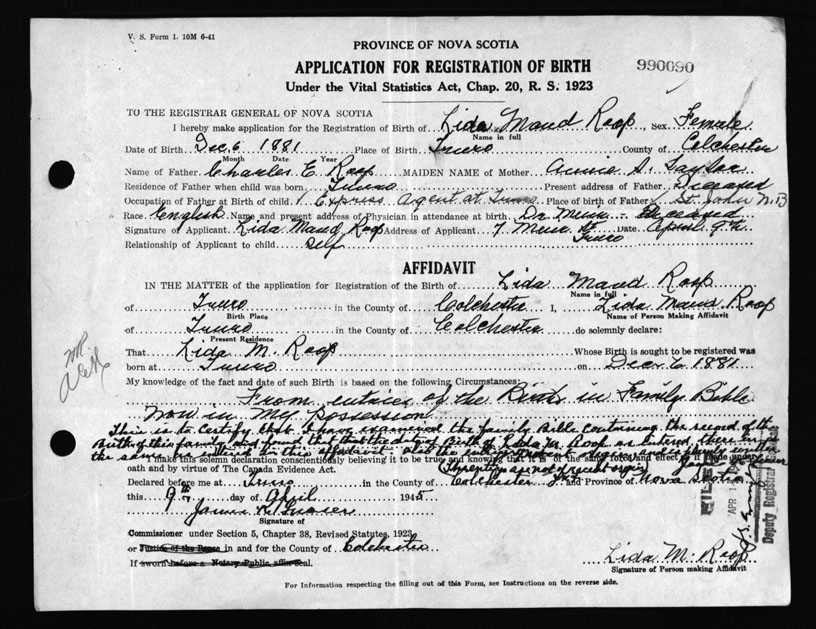 V. S. Form 1. 10M 6-41
PROVINCE OF NOVA SCOTIA
APPLICATION FOR REGISTRATION OF BIRTH
990090
Under the Vital Statistics Act, Chap. 20, R. S. 1923
TO THE REGISTRAR GENERAL OF NOVA SCOTIA
I hereby make application for the Registration of Birth of Lida Maud Roop Sex Female
Name in full
Date of Birth Dec. 6 1881 Place of Birth Truro County of Colchester
Month Date Year
Name of Father Charles E. Roop MAIDEN NAME of Mother Annie S. Taylor
Residence of Father when child was born Truro Present address of Father Deceased
Occupation of Father at Birth of child Express Agent at Truro Place of birth of Father St. John N.B
Race English Name and present address of Physician in attendance at birth Dr. Muir - Deceased
Signature of Applicant Lida Maud Roop Address of Applicant 7 Muir St Truro Date April 9th
Relationship of Applicant to child Self
AFFIDAVIT
IN THE MATTER of the application for Registration of the Birth of Lida Maud Roop
Name in full
of Truro in the County of Colchester I, Lida Maud Roop
Birth Place Name of Person Making Affidavit
of Truro in the County of Colchester do solemnly declare:
Present Residence
That Lida M. Roop Whose Birth is sought to be registered was
born at Truro on Dec. 6 1881
My knowledge of the fact and date of such Birth is based on the following Circumstances:
From entries of the Birth in Family Bible
Now in My Possession
This is to Certify that I have examined the family Bible containing the record of the
Birth of this family and found that the date of Birth of Lida M. Roop as entered there in is
the same as entered in this affidavit. also the
I make this solemn declaration conscientiously believing it to be true and knowing that it is of the same force and effect as if made under
oath and by virtue of The Canada Evidence Act.
Declared before me at Truro in the County of Colchester and Province of Nova Scotia
this 9th day of April 1945
Signature of
Commissioner under Section 5, Chapter 38, Revised Statutes, 1923
or Justice of the Peace in and for the County of Colchester
If sworn before a Notary Public affix seal.
Lida M. Roop
Signature of Person making Affidavit
FILED
APR
Deputy Registrar
For Information respecting the filling out of this Form, see Instructions on the reverse side.